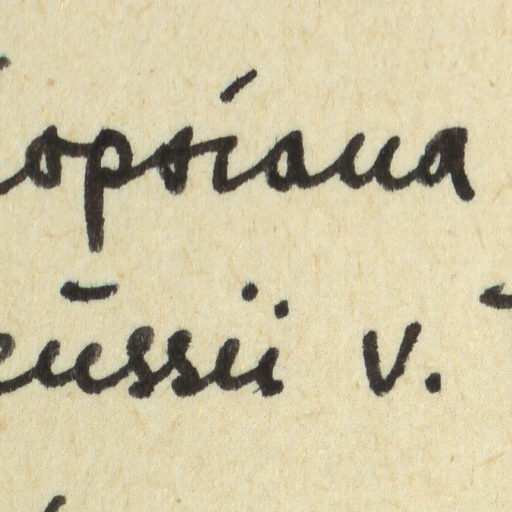 opsiana
eussii v.